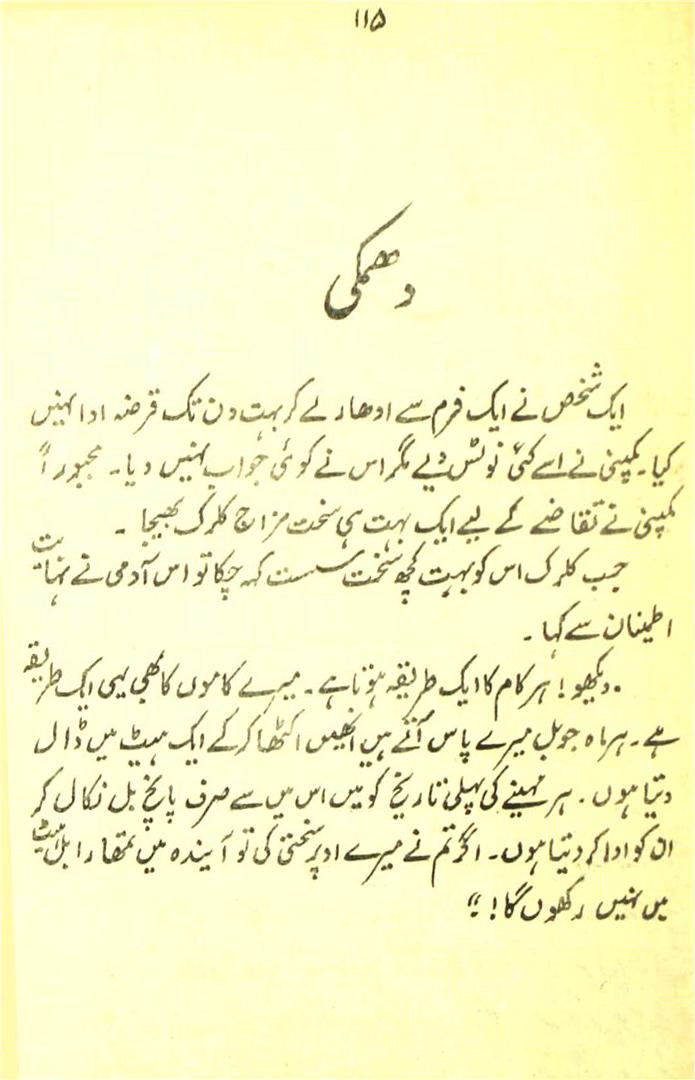 ۱۱۵
دھمکی
ایک شخص نے ایک فرم سے ادھار لے کر بہت دن تک قرضہ ادا نہیں
کیا۔ کمپنی نے اسے کئی نوٹس دیے مگر اس نے کوئی جواب نہیں دیا۔ مجبوراً
کمپنی نے تقاضے کے لیے ایک بہت ہی سخت مزاج کلرک بھیجا۔
جب کلرک اس کو بہت کچھ سخت سست کہہ چکا تو اس آدمی نے نہایت
اطمینان سے کہا۔
"دیکھو! ہر کام کا ایک طریقہ ہوتا ہے۔ میرے کاموں کا بھی یہی ایک طریقہ
ہے۔ ہر ماہ جو بل میرے پاس آتے ہیں انھیں اکٹھا کر کے ایک ہیٹ میں ڈال
دیتا ہوں۔ ہر مہینے کی پہلی تاریخ کو میں اس میں سے صرف پانچ بل نکال کر
ان کو ادا کر دیتا ہوں۔ اگر تم نے میرے اوپر سختی کی تو آیندہ میں تمھارا بل ہیٹ
میں نہیں رکھوں گا!"